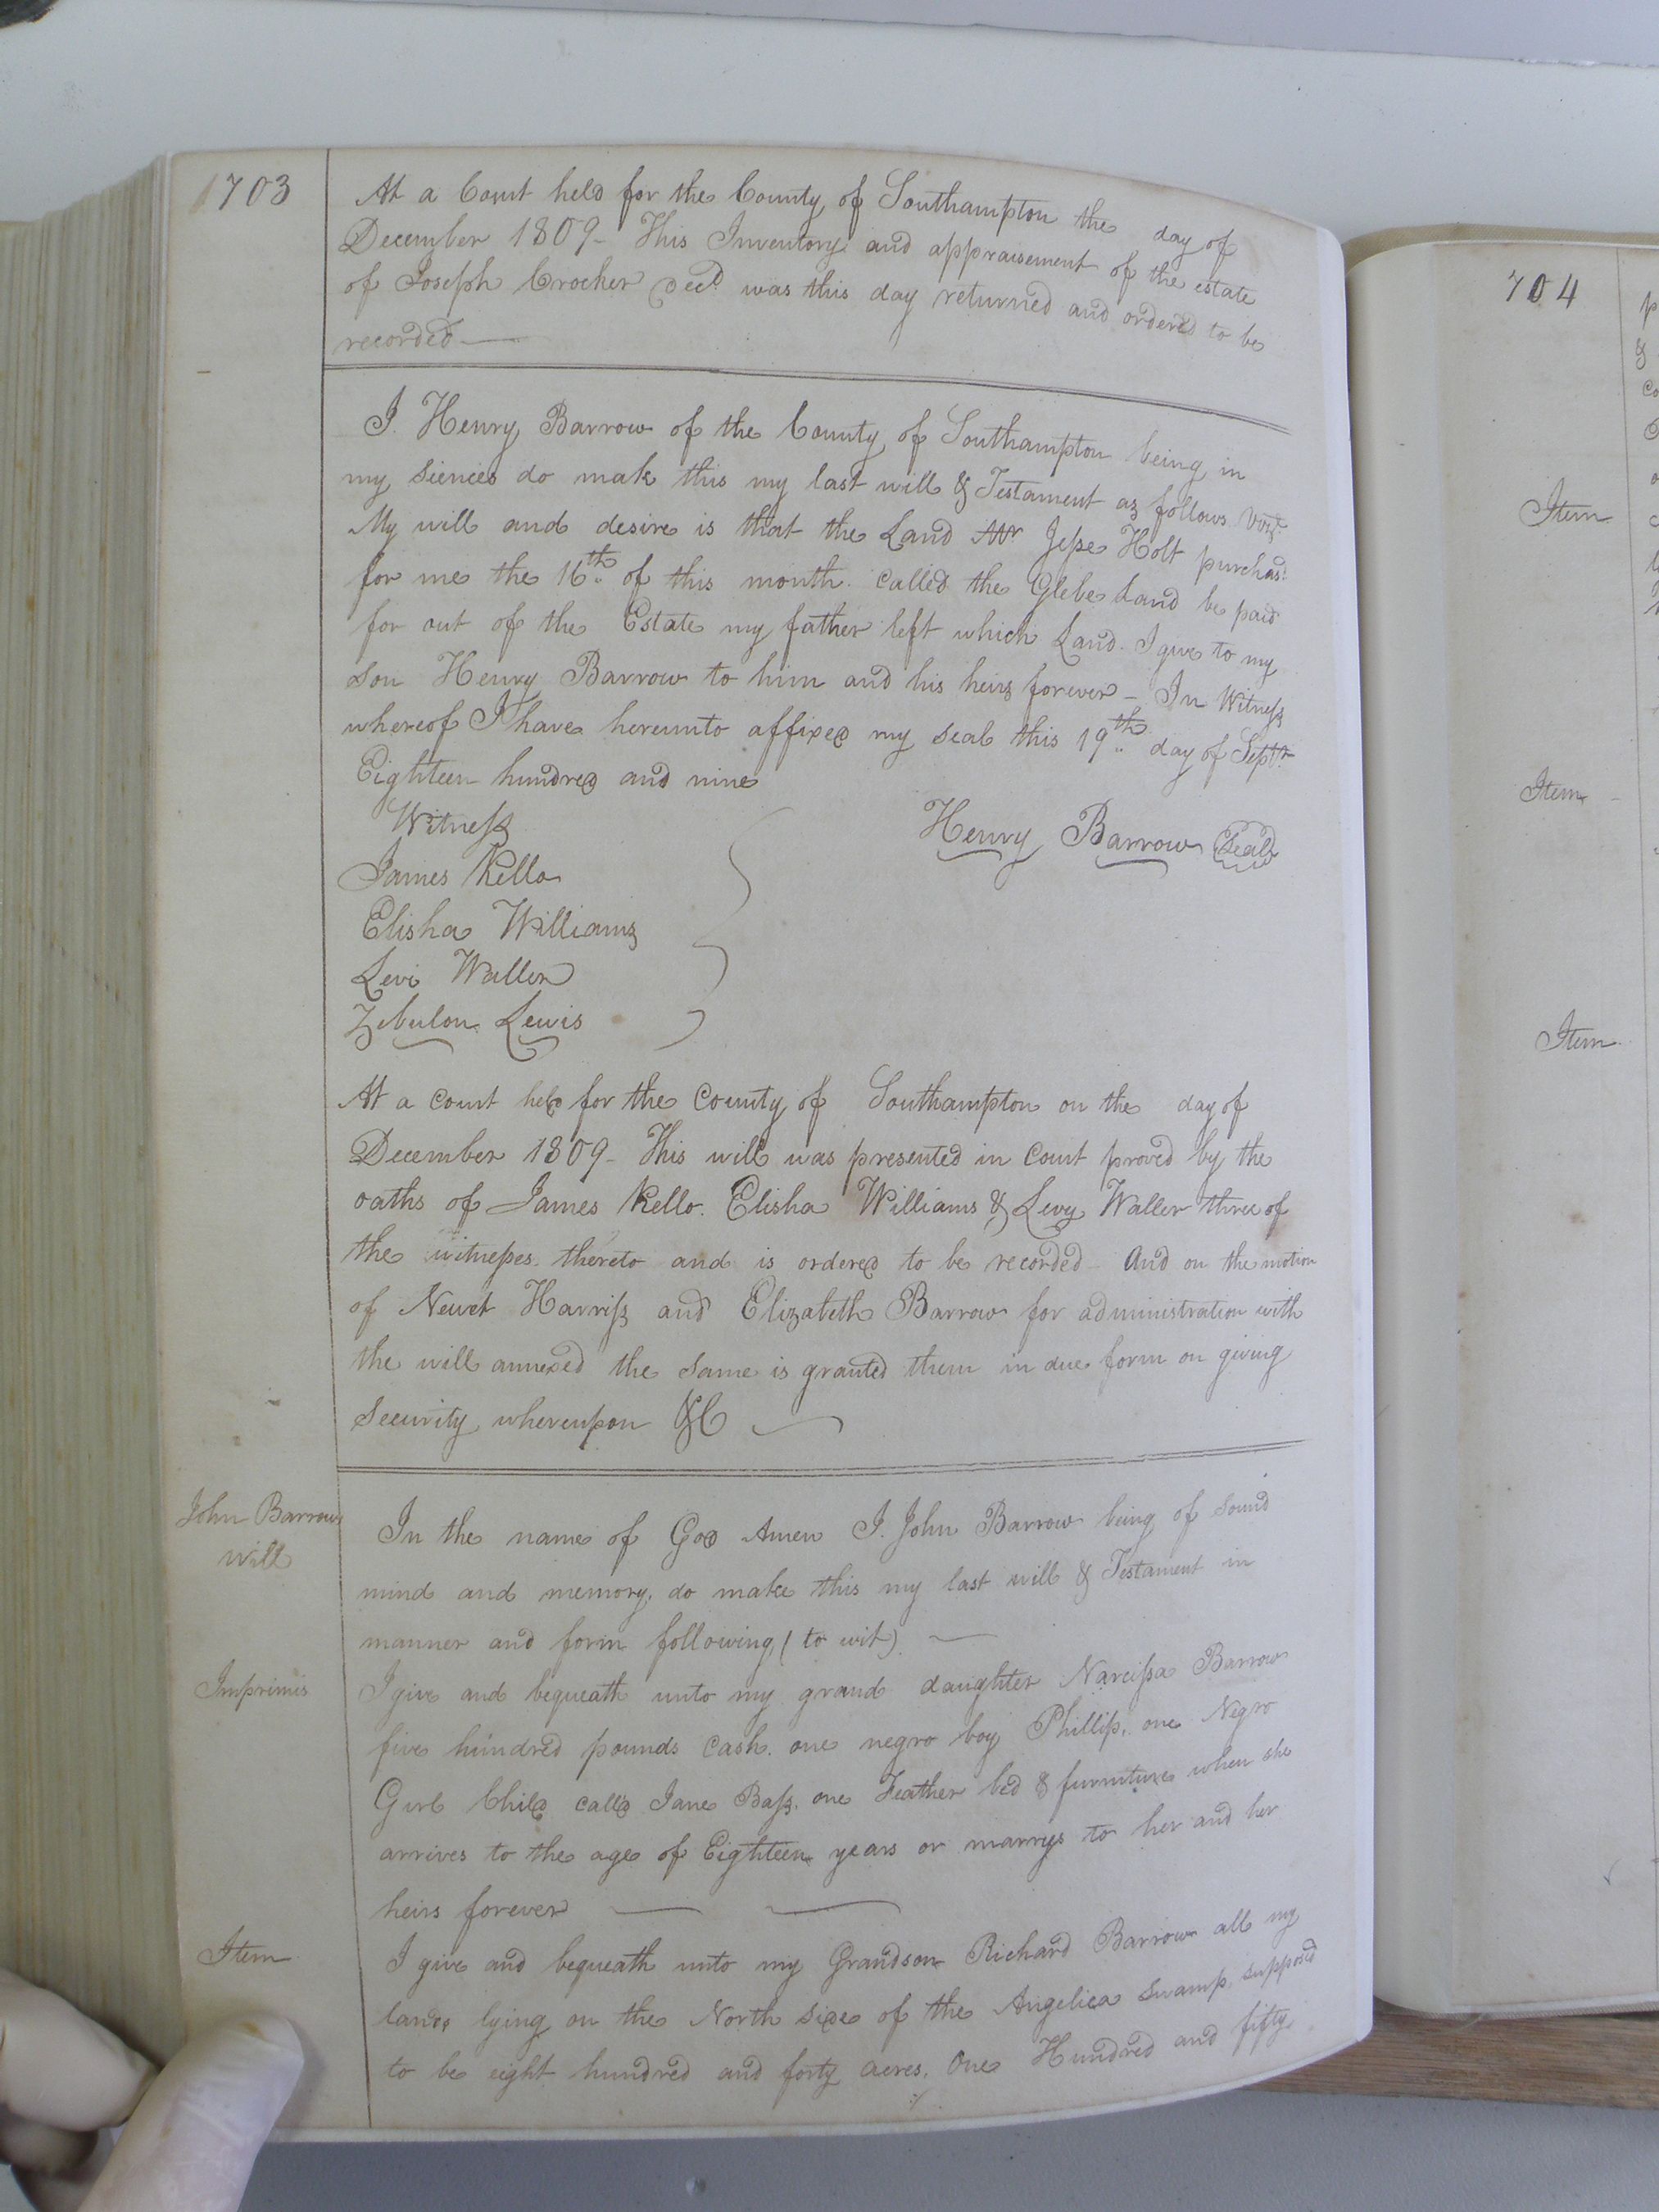 703
At a Court held for the County of Southampton the day of
December 1809 - This Inventory and appraisement of the estate
of Joseph Crocker Decd. was this day returned and ordered to be
recorded —
I. Henry Barrow of the County of Southampton being in
my siences do make this my last will & Testament as follows Vizt.
My will and desire is that the Land Mr Jesse Holt purchasd.
for me the 16th. of this month. called the Glebe Land be paid
for out of the Estate my father left which Land. I give to my
Son Henry Barrow to him and his heirs forever - In Witness
whereof I have hereunto affixed my seal this 19th. day of Septr.
Eighteen hundred and nine
Witness
Henry Barrow Seal
James Kello
Elisha Williams
Levi Waller
Zebulon Lewis
At a court held for the County of Southampton on the day of
December 1809 - This will was presented in Court proved by the
oaths of James Kello. Elisha Williams & Levy Waller three of
the witnesses. thereto and is ordered to be recorded - And on the motion
of Newet Harriss and Elizabeth Barrow for administration with
the will annexed the same is granted them in due form on giving
Security whereupon &C
John Barrow
will
In the name of God Amen I. John Barrow being of sound
mind and memory, do make this my last will & Testament in
manner and form following (to wit). —
Imprimis
I give and bequeath unto my grand daughter Narcissa Barrow
five hundred pounds Cash. one negro boy Phillip, one Negro
Girl Child calld Jane Bass. one Feather bed & furniture when she
arrives to the age of Eighteen years or marrys to her and her
heirs forever — —
Item
I give and bequeath unto my Grandson Richard Barrow all my
lands lying on the North side of the Angelica Swamp. supposed
to be eight hundred and forty acres. One Hundred and fifty
704
Item
Item
Item